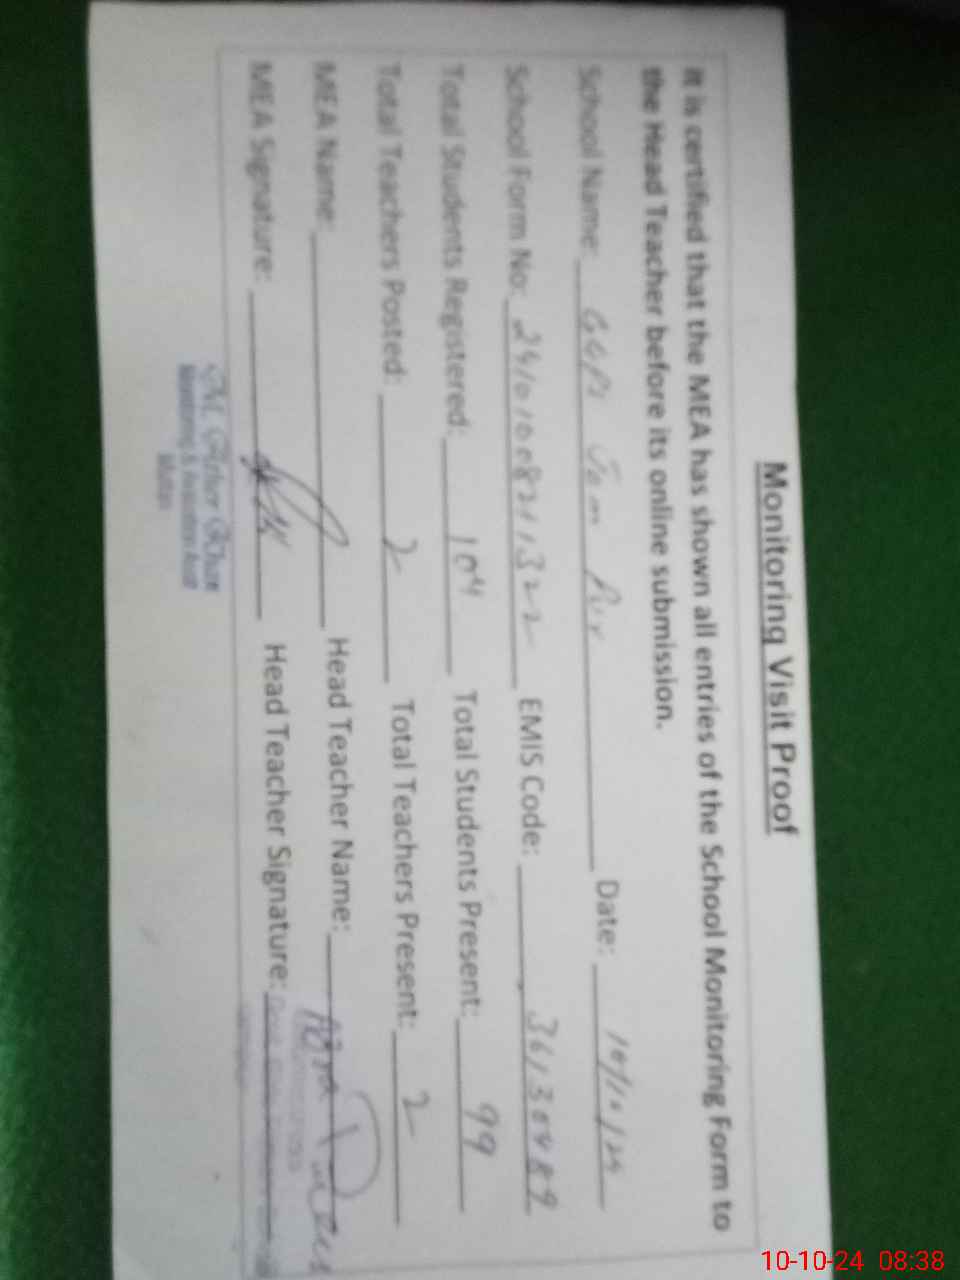 Monitoring Visit Proof
It is certified that the MEA has shown all entries of the School Monitoring Form to
the Head Teacher before its online submission.
School Name: GGPS Jam Pur Date: 10/10/24
School Form No: 24101008211322 EMIS Code: 36130489
Total Students Registered: 104 Total Students Present: 99
Total Teachers Posted: 2 Total Teachers Present: 2
MEA Name: Head Teacher Name:
MEA Signature: Head Teacher Signature:
Khan
Monitoring & Evaluation Asstt
Multan
10-10-24 08:38